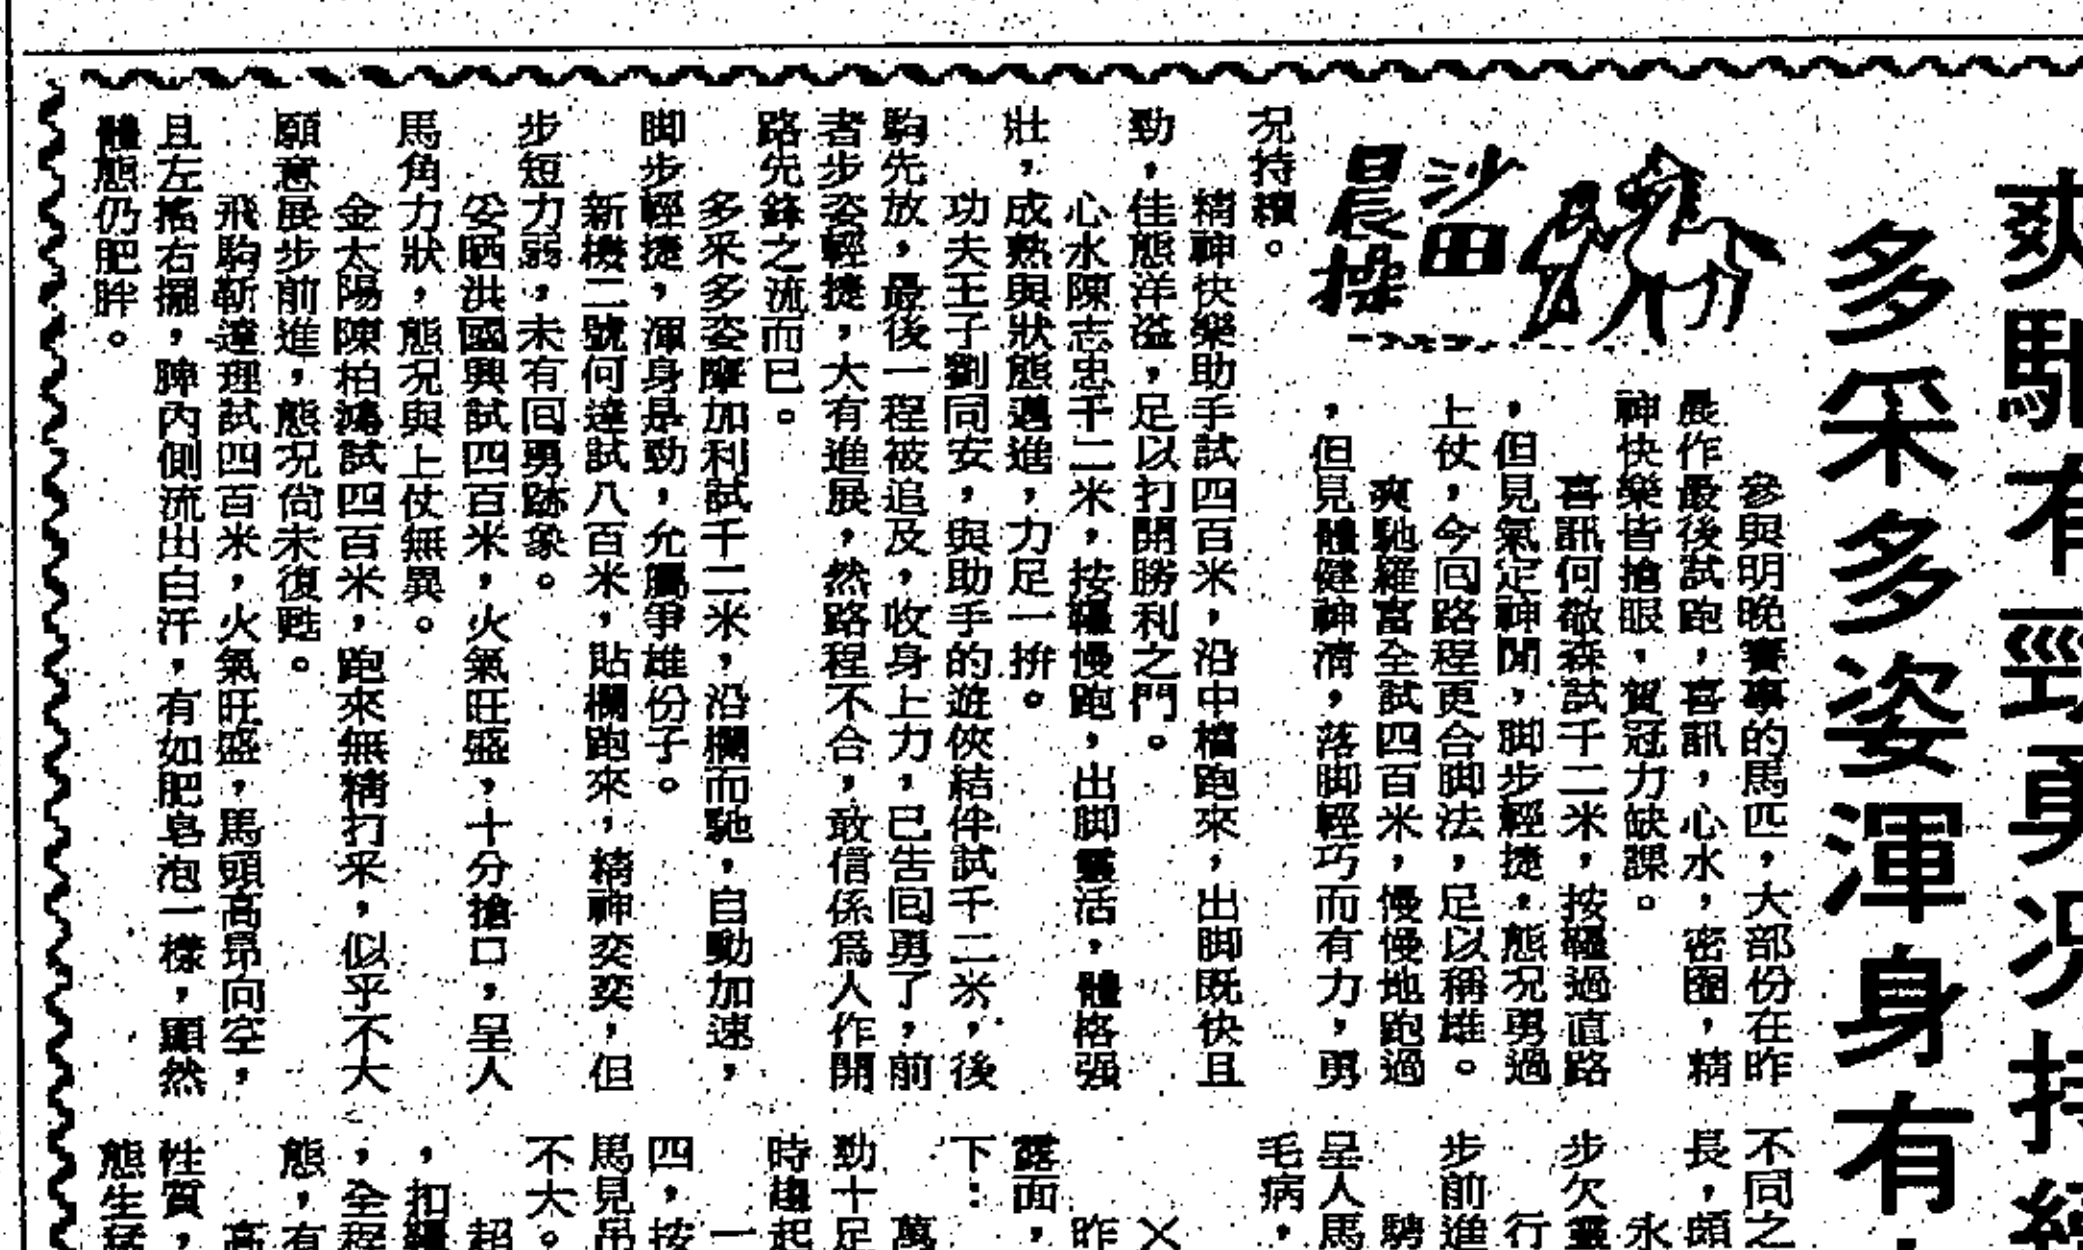 爽馳有勁勇況持
多采多姿渾身有
沙田
晨操
參與明晚賽事的馬匹，大部份在昨
晨作最後試跑，喜訊，心水，密圈，精
神快樂皆搶眼，賀冠力缺課。
喜訊何敬森試千二米，按韁過直路
，但見氣定神閒，脚步輕捷，態況勇過
上仗，今回路程更合脚法，足以稱雄。
爽馳羅富全試四百米，慢慢地跑過
，但見體健神清，落脚輕巧而有力，勇
況持續。
精神快樂助手試四百米，沿中檔跑來，出脚既快且
勁，佳態洋溢，足以打開勝利之門。
心水陳志忠千二米，按韁慢跑，出脚靈活，體格强
壯，成熟與狀態邁進，力足一拚。
功夫王子劉同安，與助手的遊俠結伴試千二米，後
駒先放，最後一程被追及，收身上力，已告回勇了，前
者步姿輕捷，大有進展，然路程不合，敢信係爲人作開
路先鋒之流而已。
多采多姿摩加利試千二米，沿欄而馳，自動加速，
脚步輕捷，渾身是勁，允屬爭雄份子。
新機二號何達試八百米，貼欄跑來，精神奕奕，但
步短力弱，未有回勇跡象。
姿晒洪國興試四百米，火氣旺盛，十分搶口，呈人
馬角力狀，態況與上仗無異。
金太陽陳柏鴻試四百米，跑來無精打采，似乎不大
願意展步前進，態況尙未復甦。
飛駒靳達理試四百米，火氣旺盛，馬頭高昂向空，
且左搖右擺，脾內側流出白汗，有如肥皂泡一樣，顯然
體態仍肥胖。
不同之
長，頗
永
步欠靈
行
步前進
騁
呈人馬
毛病，
×
昨
露面，
下：
萬
勁十足
時趨起
一
四，按
馬見吊
不大。
超
，扣韁
，全程
態，有
高
性質，
態生猛